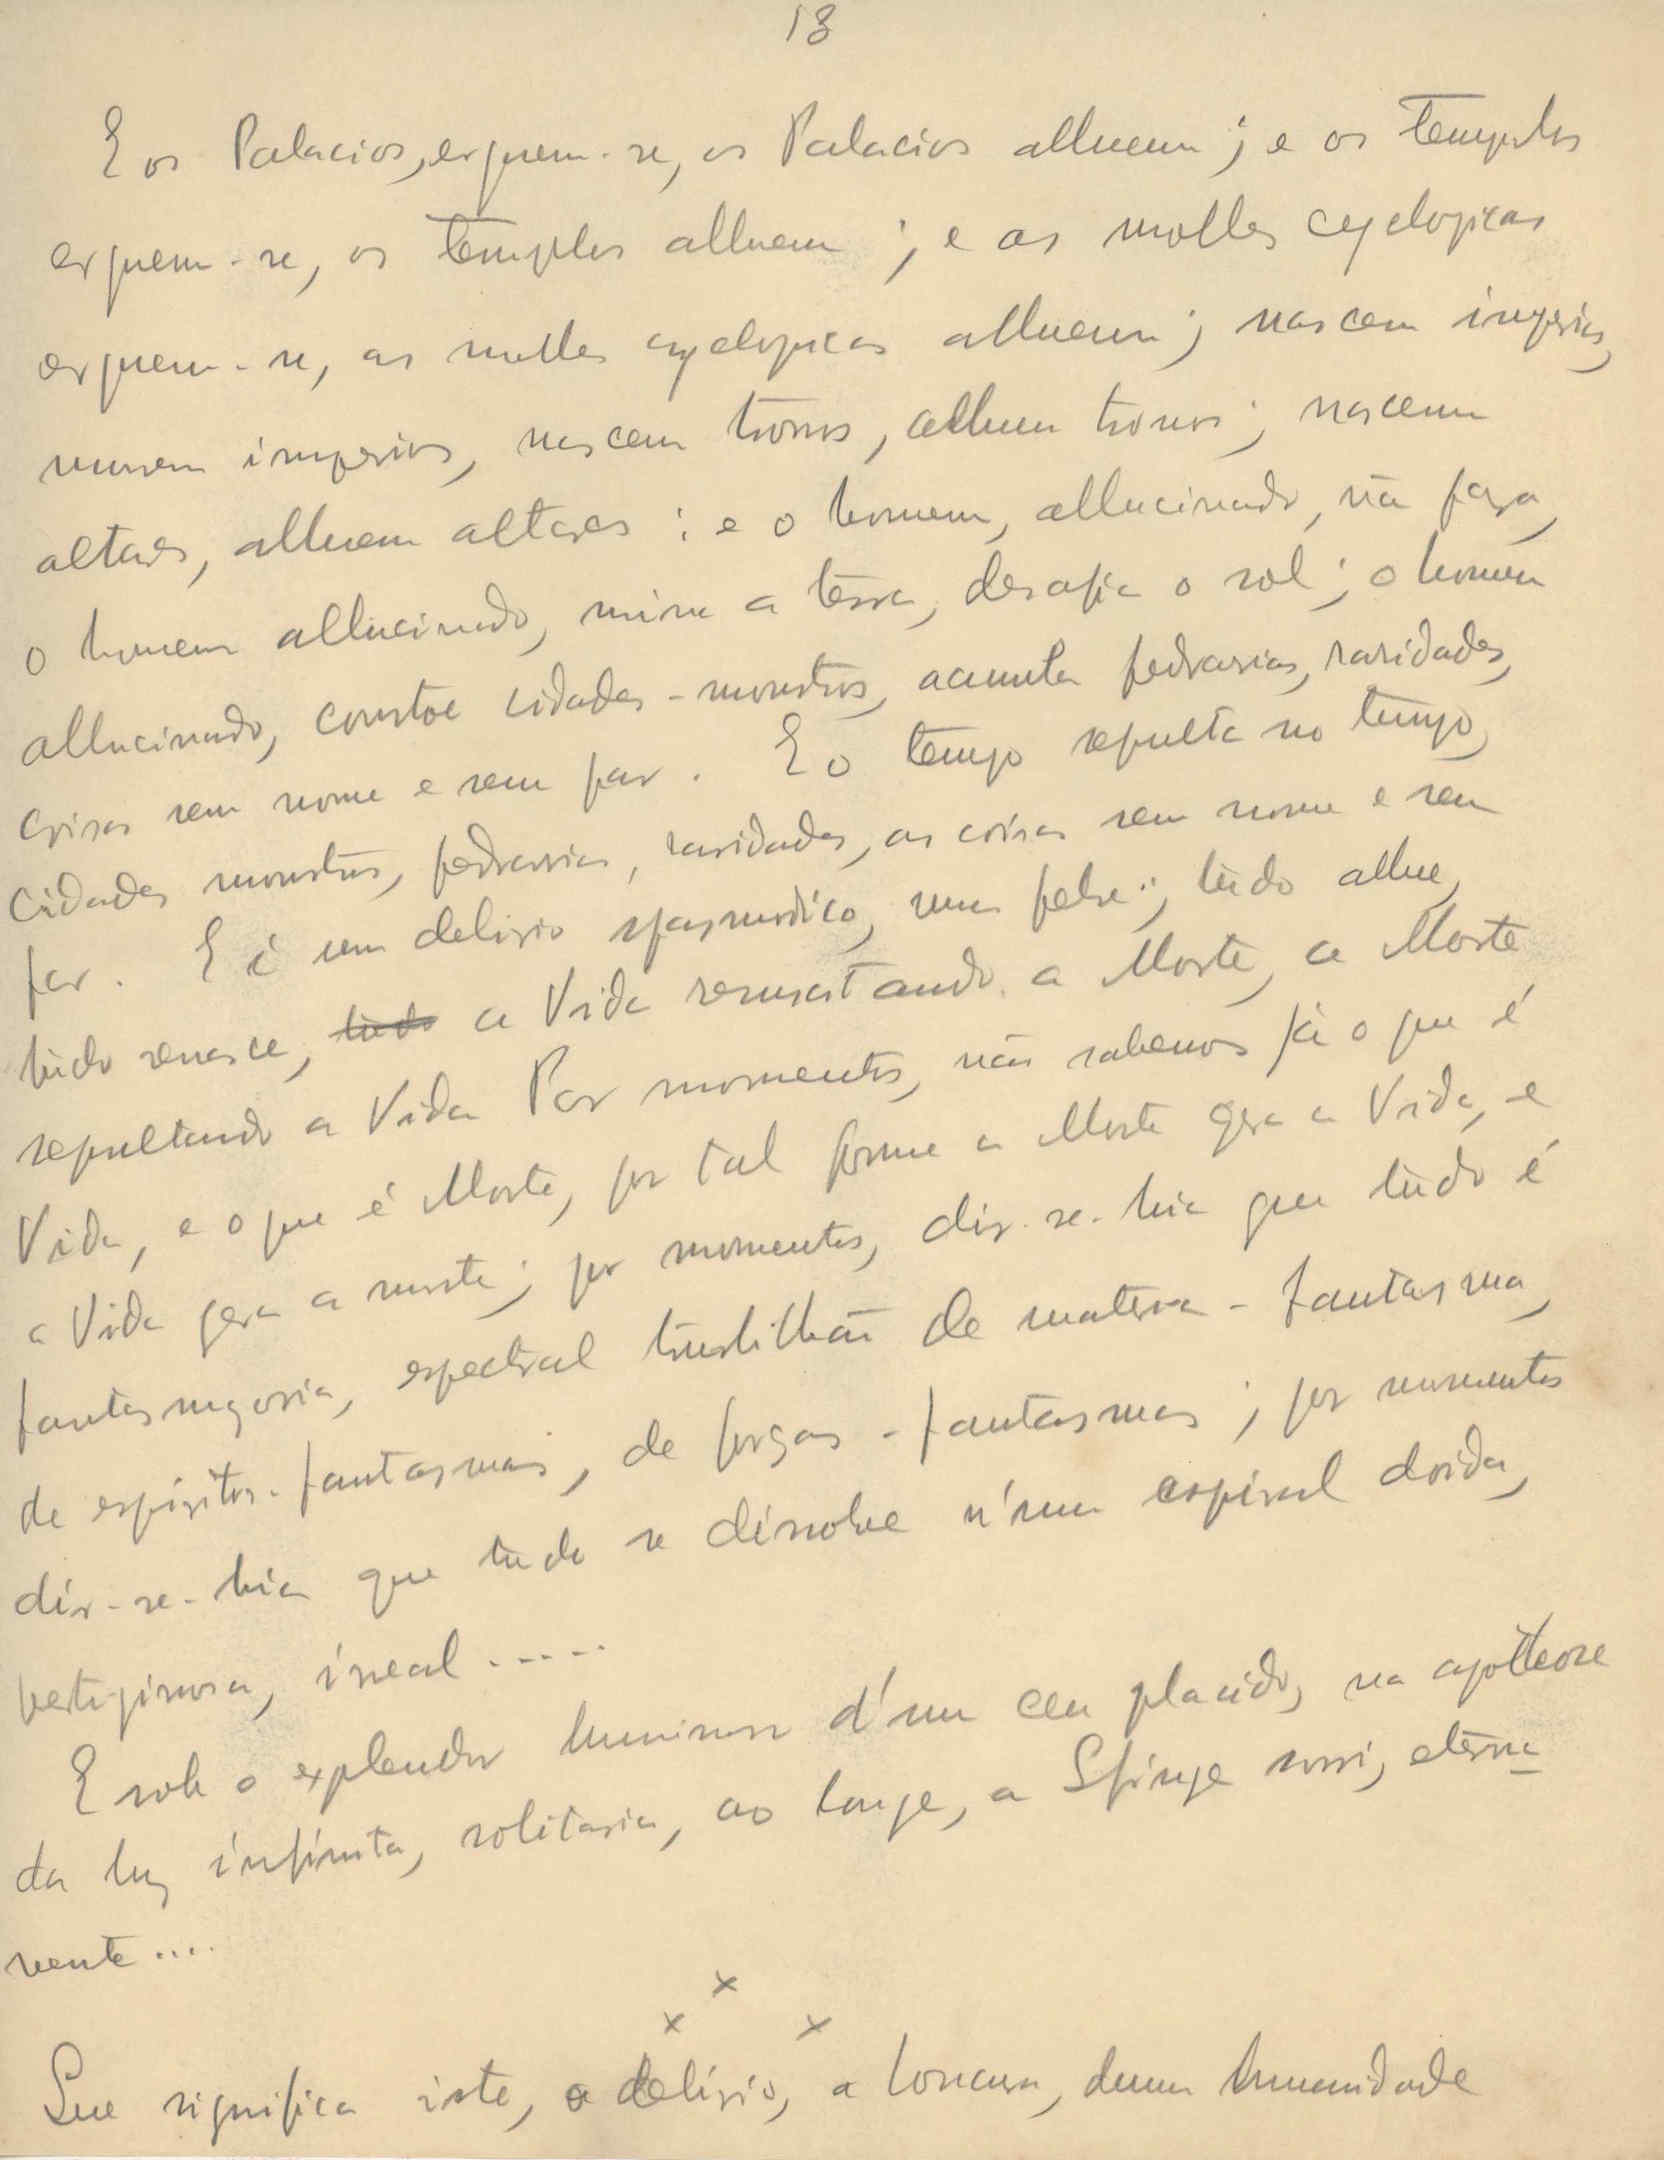 13
E os Palacios, erguem-se, os Palacios alluem; e os templos
erguem-se, os templos alluem; e as molles cyclopicas
erguem-se, as molles cyclopicas alluem; nascem imperios,
morrem imperios, nascem tronos, alluem tronos; nascem
altares, alluem altares: e o homem, allucinado, não para,
o homem allucinado, mina a terra, desafia o sol; o homem
allucinado, constroe cidades-monstros, acumula pedrarias, raridades,
coisas sem nome e sem par. E o tempo sepulta no tempo,
cidades monstros, pedrarias, raridades, as coisas sem nome e sem
par. E é um delirio spasmodico, uma febre; tudo allue,
tudo renasce, tudo a Vida ressuscitando a Morte, a Morte
sepultando a Vida Por momentos, não sabemos já o que é
Vida, e o que é Morte, por tal forma a Morte gera a Vida, e
a Vida gera a morte; por momentos, dir-se-hia que tudo é
fantasmagoria, espectral turbilhão de materia-fantasma,
de espiritos-fantasmas, de forças-fantasmas; por momentos
dir-se-hia que tudo se dissolve n'uma espiral doida,
vertiginosa, irreal.....
E sob o explendor luminoso d'um ceu placido, na apotheose
da luz infinita, solitaria, ao longe, a Sfinge sorri, eterna
mente....
x x x
Que significa isto, o delirio, a loucura, duma humanidade